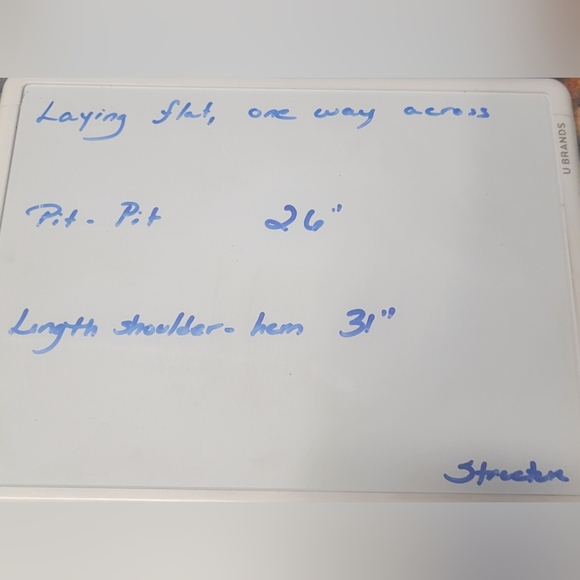 Laying flat, one way across
U BRANDS
Pit - Pit 26"
Length shoulder - hem 31"
Structure